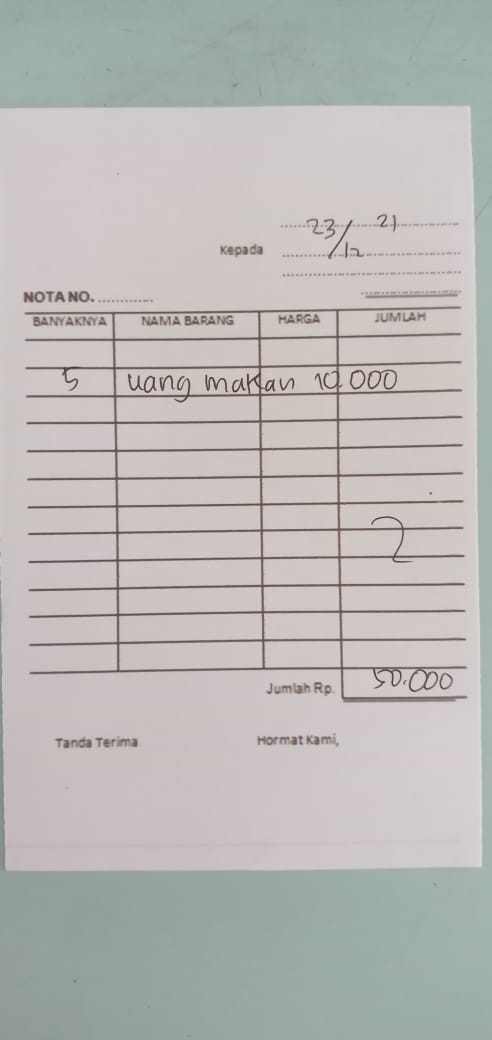 23/12 21
Kepada
NOTA NO. ............
BANYAKNYA NAMA BARANG HARGA JUMLAH
5 uang makan 10.000
2
Jumlah Rp. 50.000
Tanda Terima Hormat Kami,